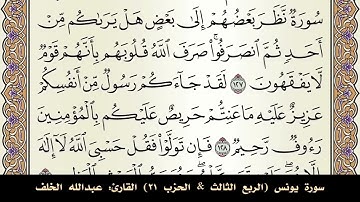 سُورَةٌ نَّظَرَ بَعْضُهُمْ إِلَىٰ بَعْضٍ هَلْ يَرَىٰكُم مِّنْ
أَحَدٍ ثُمَّ ٱنصَرَفُوا۟ ۚ صَرَفَ ٱللَّهُ قُلُوبَهُم بِأَنَّهُمْ قَوْمٌ
لَّا يَفْقَهُونَ ١٢٧ لَقَدْ جَآءَكُمْ رَسُولٌ مِّنْ أَنفُسِكُمْ
عَزِيزٌ عَلَيْهِ مَا عَنِتُّمْ حَرِيصٌ عَلَيْكُم بِٱلْمُؤْمِنِينَ
رَءُوفٌ رَّحِيمٌ ١٢٨ فَإِن تَوَلَّوْا۟ فَقُلْ حَسْبِىَ ٱللَّهُ لَآ إِلَٰهَ
سورة يونس (الربع الثالث & الحزب ٢١) القارئ: عبدالله الخلف